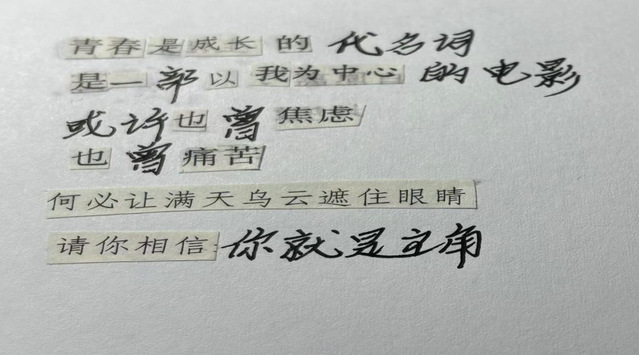 青春是成长的代名词
是一部以我为中心的电影
或许也曾焦虑
也曾痛苦
何必让满天乌云遮住眼睛
请你相信你就是主角